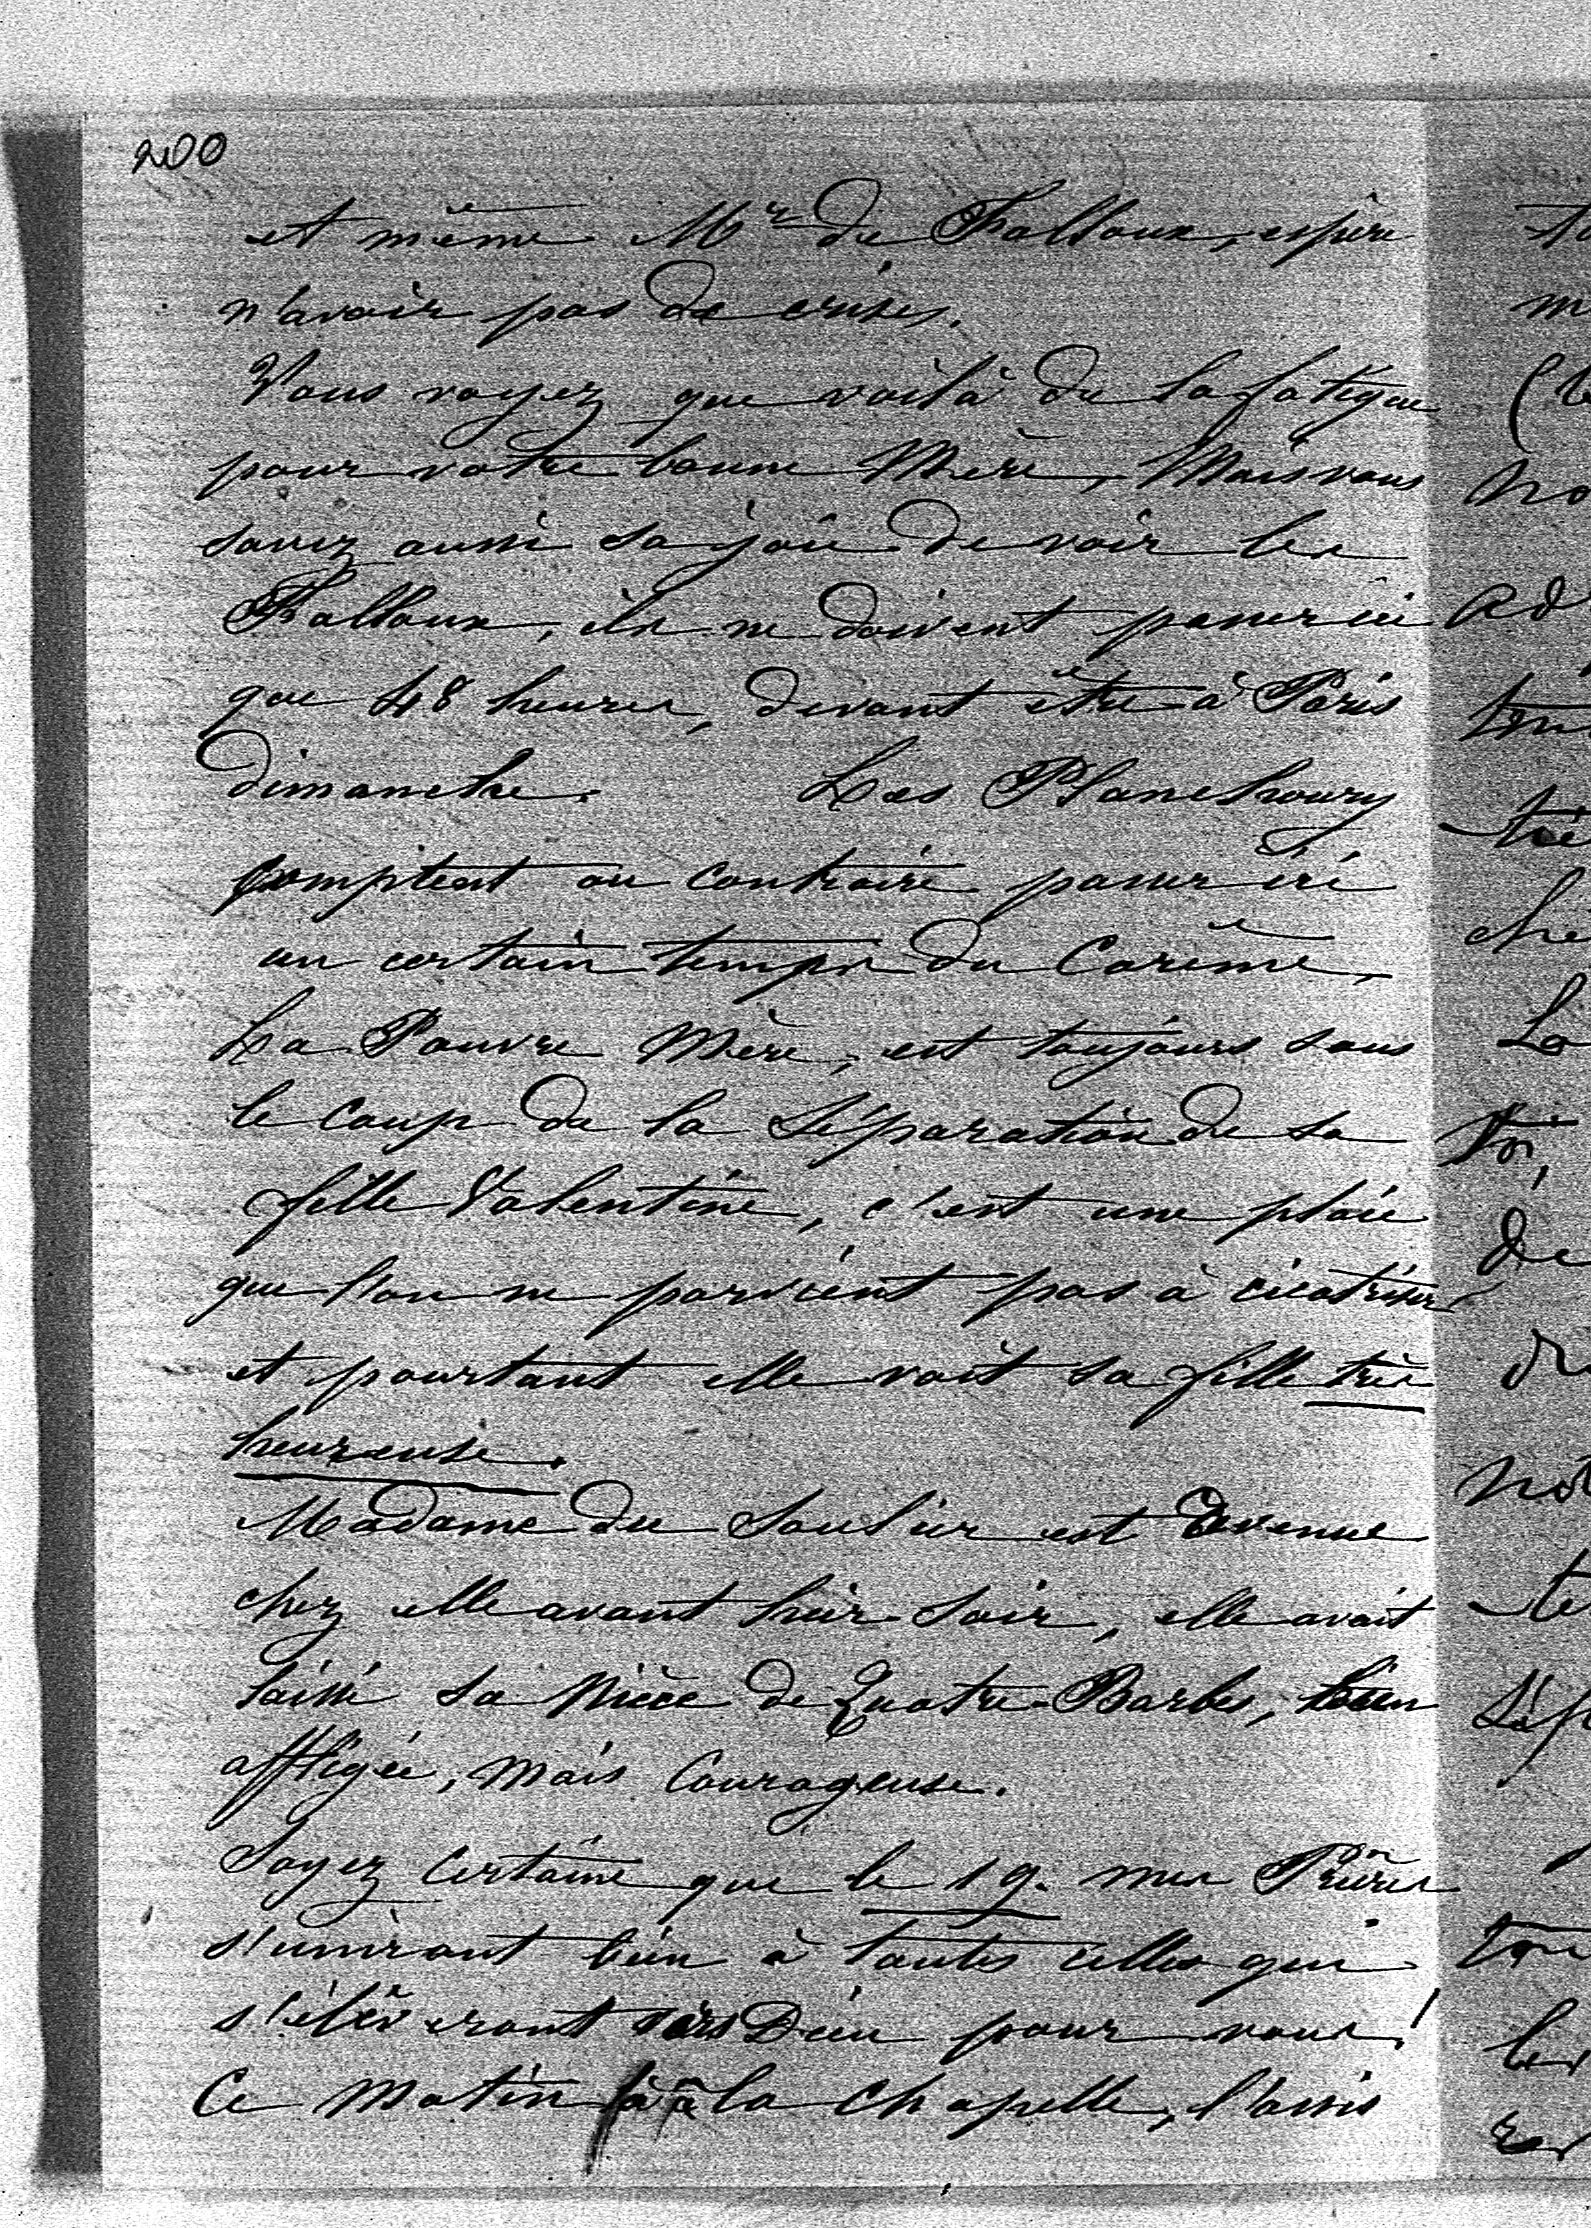 200
et même Mr de Falloux, espère
n'avoir pas de crises.
Vous voyez que voilà de la fatigue
pour votre bonne Mère, Mais vous
savez aussi sa joie de voir les
Falloux, ils ne doivent passer ici
que 48 heures, devant être à Paris
dimanche. Les Planchoury
comptent au contraire passer ici
un certain temps du Carême,
La Pauvre Mère, est toujours sous
le coup de la Séparation de sa
fille Valentine, c'est une plaie
que l'on ne parvient pas à cicatriser
et pourtant elle voit sa fille très
heureuse.
Madame du Soulier est revenue
chez elle avant hier Soir, elle avait
laissé sa Nièce de Quatre-Barbes, bien
affligée, Mais Courageuse.
Soyez Certaine que le 19. mes Prières
s'uniront bien à toutes celles qui
s'élèveront vers Dieu pour vous!
Ce Matin à la Chapelle, l'assis